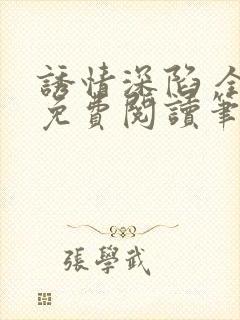 誘情深陷 全
免費閱讀筆
張學武